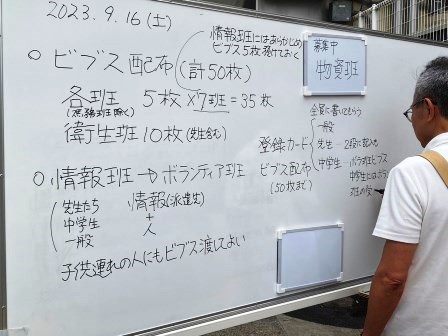 2023.9.16(土)
情報班にはあらかじめ
ビブス5枚預けておく
○ビブス配布(計50枚)
各班 5枚×7班=35枚
(庶務班除く)
衛生班10枚(先生含む)
○情報班→ボランティア班
先生たち
中学生
一般
情報(派遣先)
+
人
子供連れの人にもビブス渡してよい
募集中
物資班
全員に書いてもらう
登録カード
一般
先生…2段に記入
中学生…ボラ用ビブス
ビブス配布
(50枚まで)
中学生には
班の